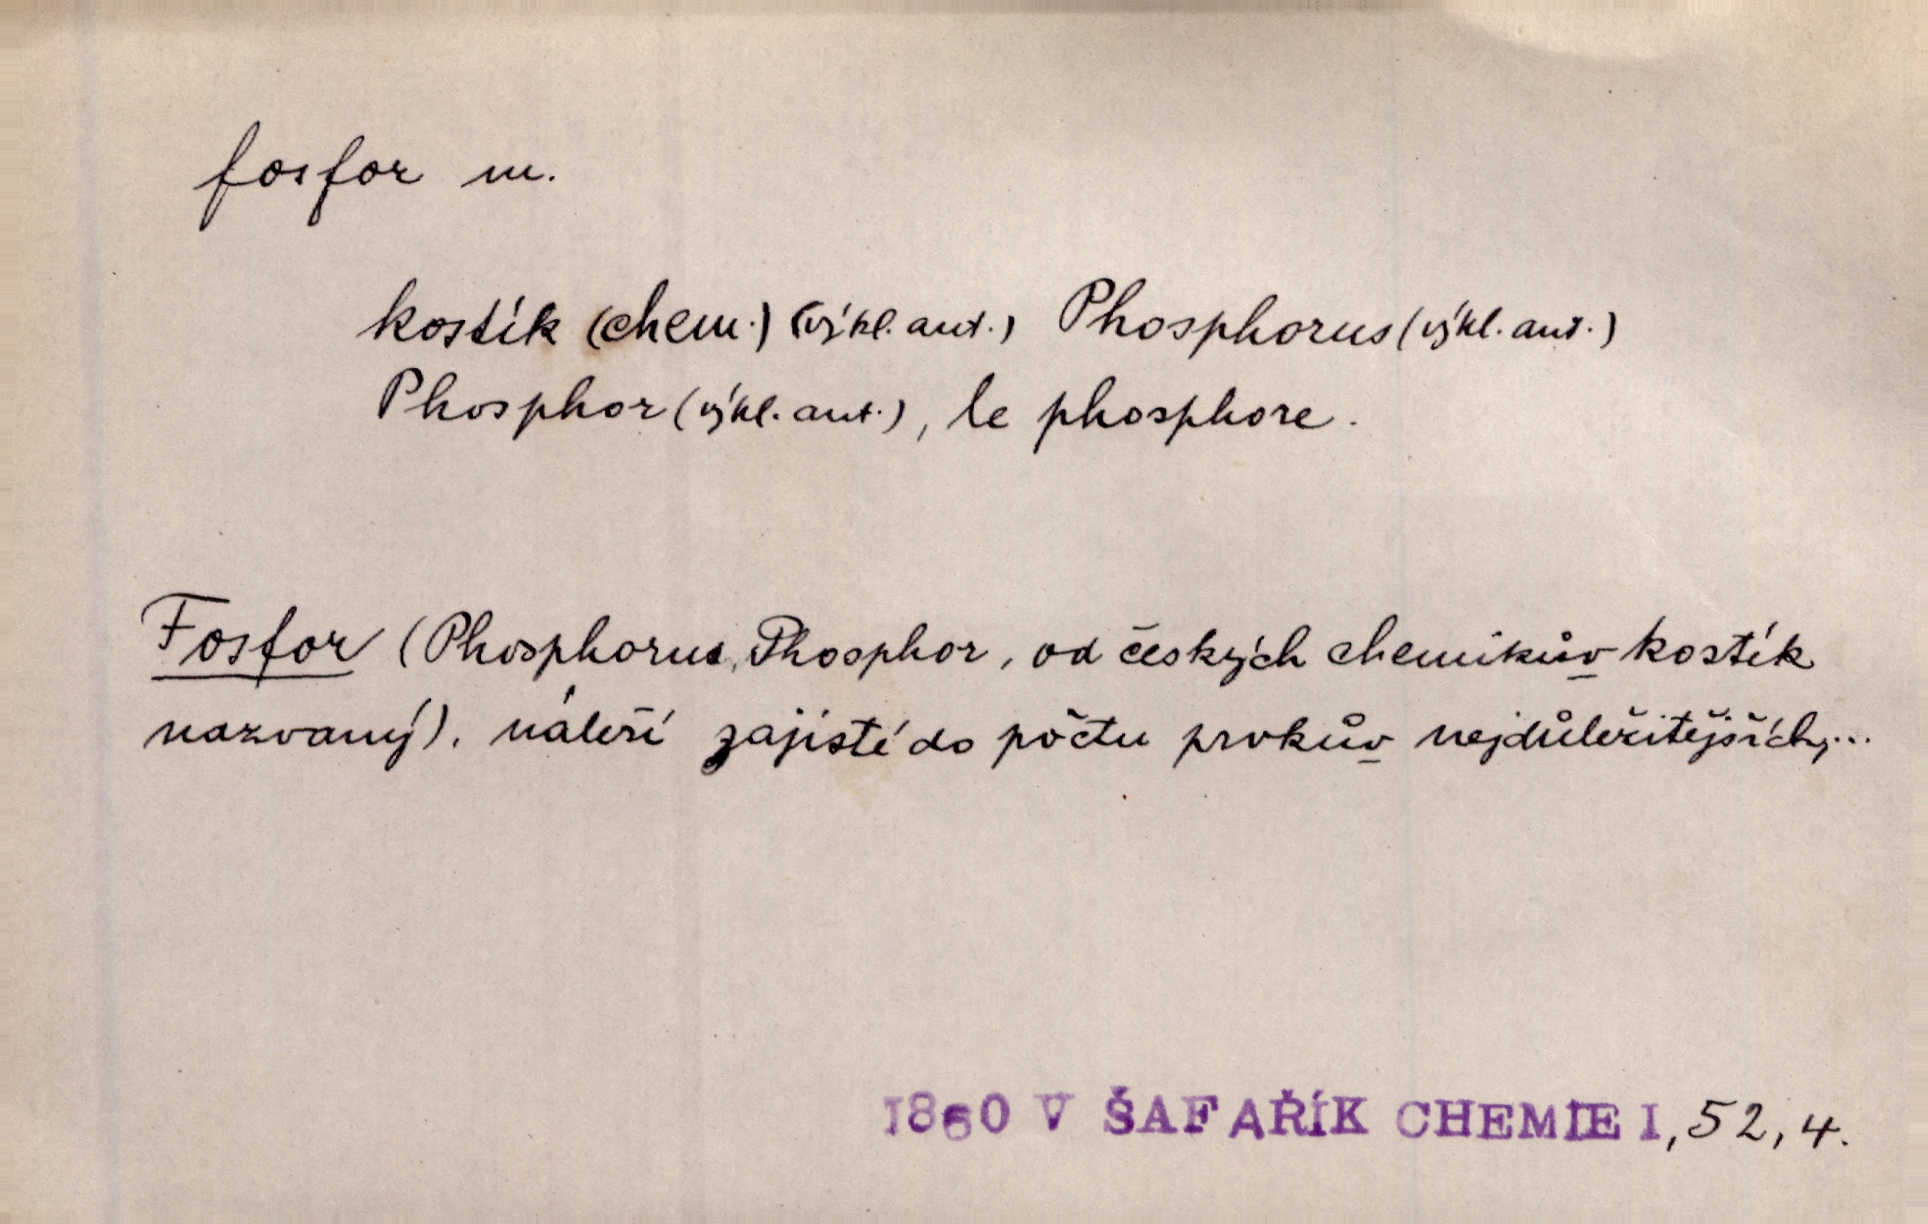 fosfor m.
kostík (chem.) (výkl. aut.) Phosphorus (výkl. aut.)
Phosphor (výkl. aut.), le phosphore.
Fosfor (Phosphorus, Phosphor, od českých chemikův kostík
nazvaný), náleží zajisté do počtu prvkův nejdůležitějších,...
1860 V ŠAFAŘÍK CHEMIE I, 52, 4.